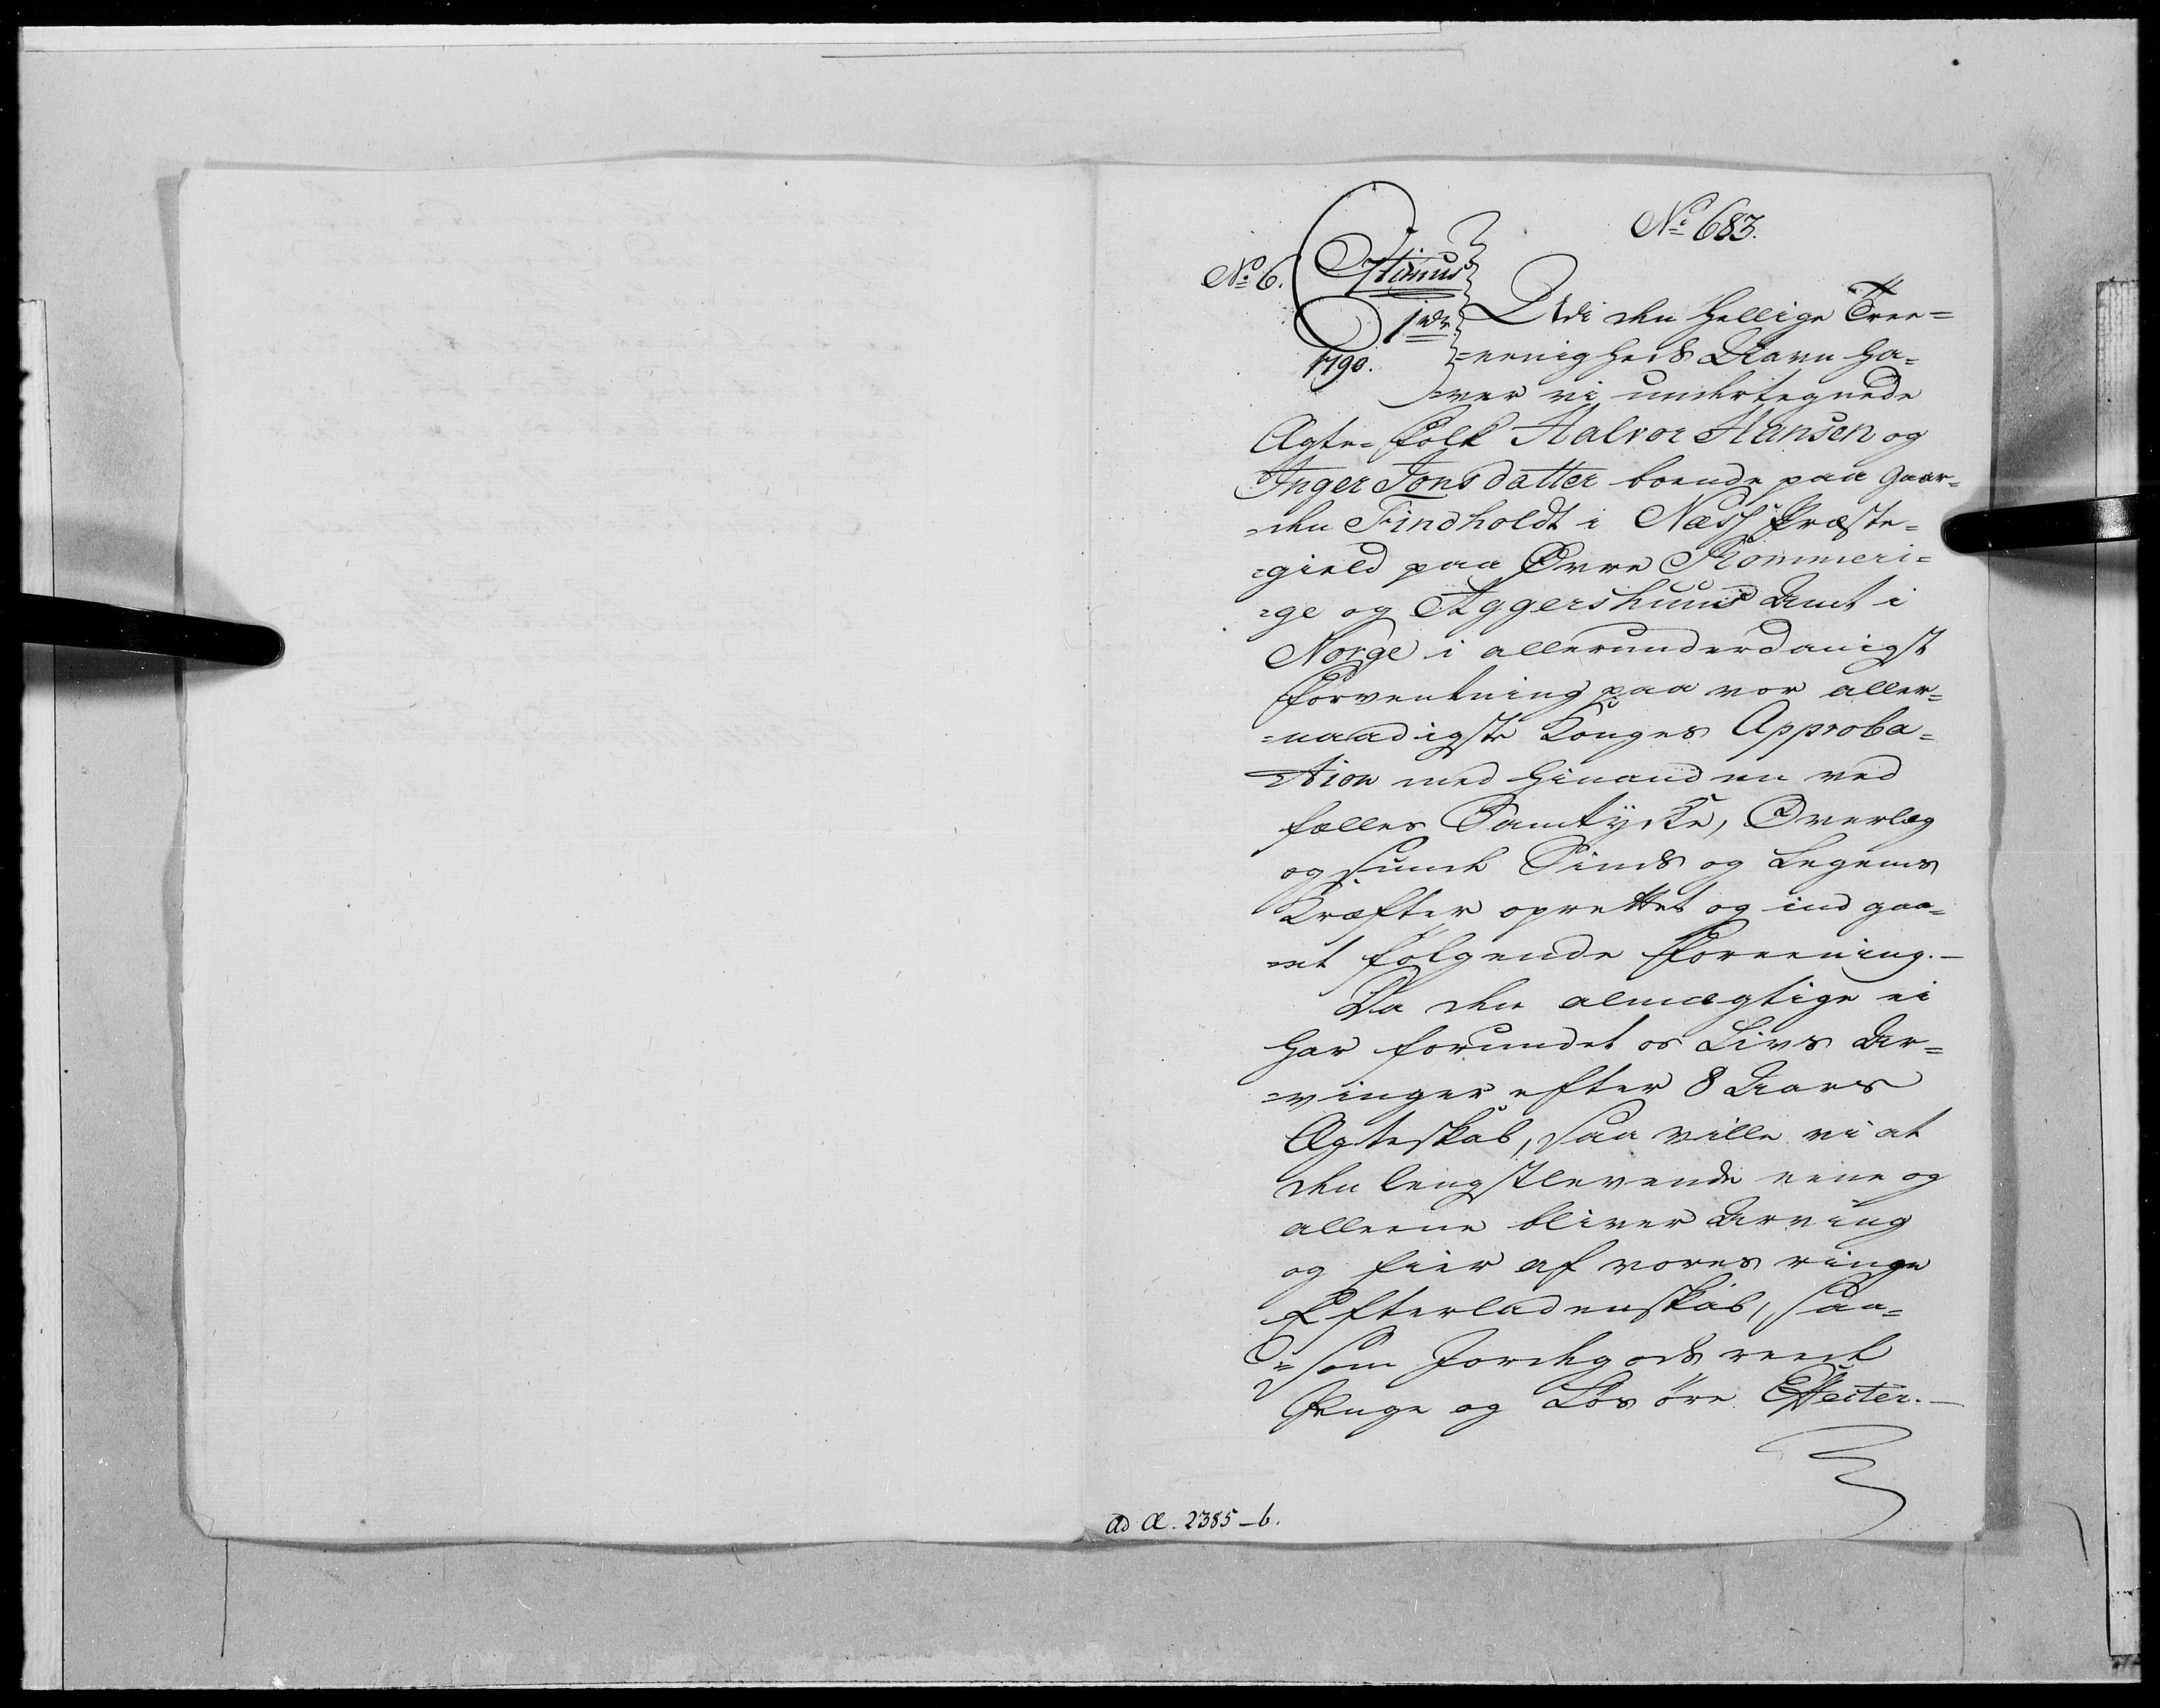 No. 683.
No. 6.
1790.
Udi den Hellige Tree=
=eenigheds Navn ha=
=ver vi undertegnede
Ægte=Folk Halvor Hansen og
Inger Jonsdatter boende paa Gaar=
=den Findholdt i Næss Præste=
=gield paa Øvre Rommeri=
=ge og Aggershuus Amt i
Norge i allerunderdanigst
Forventning paa vor aller=
=naadigste Konges Approba=
=tion med hinanden ved
fælles Samtykke, Overlæg
og sunde Sinds og Legems
Kræfter oprettet og ind gaa=
=et følgende Foreening.—
Da den almægtige ei
har forundet os Livs Ar=
=vinger efter 8 Aars
Ægteskab, saa ville vi at
den lengstlevende eene og
alleene bliver Arving
og Eier af vores ringe
Efterladenskab, saa=
=som Jordegods reede
Penge og Løsøre Effecter.—
ad Æ. 2385-b.